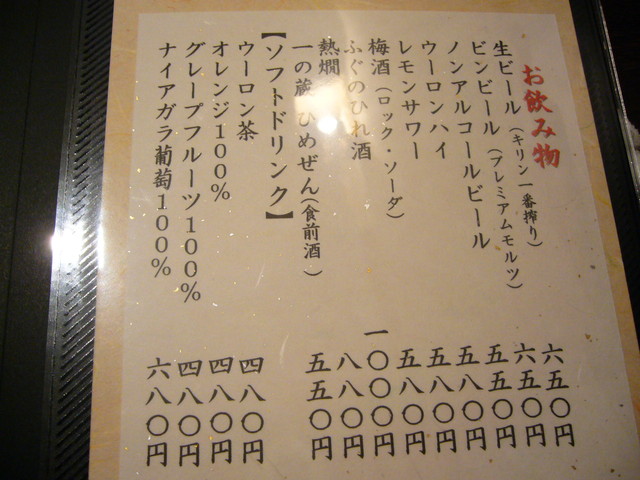 お飲み物
生ビール（キリン一番搾り） 六五〇円
ビンビール（プレミアムモルツ） 六五〇円
ノンアルコールビール 五五〇円
ウーロンハイ 五八〇円
レモンサワー 五八〇円
梅酒（ロック・ソーダ） 五八〇円
ふぐのひれ酒 一〇〇〇円
熱燗 八八〇円
一の蔵 ひめぜん（食前酒） 五五〇円
【ソフトドリンク】
ウーロン茶 四八〇円
オレンジ１００％ 四八〇円
グレープフルーツ１００％ 四八〇円
ナイアガラ葡萄１００％ 六八〇円